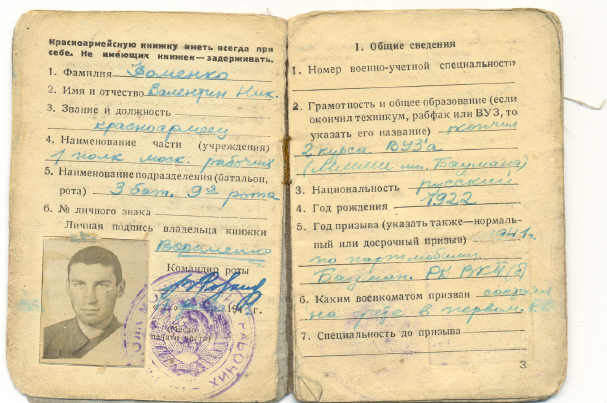 Красноармейскую книжку иметь всегда при
себе. Не имеющих книжек—задерживать.
1. Фамилия Фоменко
2. Имя и отчество Валентин Ник.
3. Звание и должность
красноармеец
4. Наименование части (учреждения)
1 полк моск. рабочих
5. Наименование подразделения (батальон,
рота) 3 бат. 9ая рота
6. № личного знака
Личная подпись владельца книжки
Командир роты
194 г.
РАБОЧИХ
I. Общие сведения
1. Номер военно-учетной специальности
2. Грамотность и общее образование (если
окончил техникум, рабфак или ВУЗ, то
указать его название) окончил
2 курса ВУЗ'а
им. Баумана)
3. Национальность русский
4. Год рождения 1922
5. Год призыва (указать также—нормаль-
ный или досрочный призыв) 1941 г.
по партмобилиз.
Бауман. РК ВКП(б)
6. Каким военкоматом призван состоял
на учете в первом
7. Специальность до призыва
3